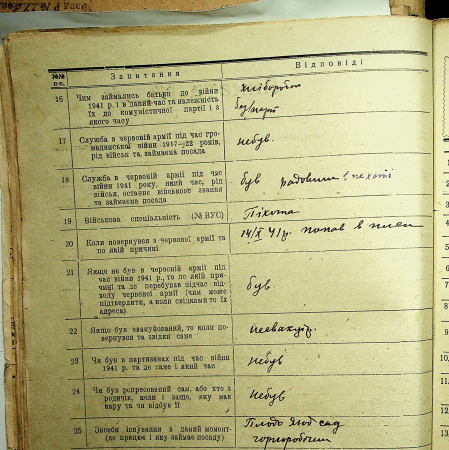 №№ п-п.
Запитання
Відповіді
16 Чим займались батьки до війни
1941 р. і в даний час та належність
їх до комуністичної партії і з
якого часу
хліборобом
без/парт
17 Служба в червоній армії під час гро-
мадянської війни 1917—22 років,
рід військ та займаєма посада
небув.
18 Служба в червоній армії під час
війни 1941 року, який час, рід
військ, останнє військове звання
та займаєма посада
був радовим в пехоті
19 Військова спеціальність (№ ВУС)
Піхота
20 Коли повернувся з червоної армії та
по якій причині
14/X 41р. попав в плен
21 Якщо не був в червоній армії під
час війни 1941 р., то по якій при-
чині та де перебував підчас від-
ходу червоної армії (чим може
підтвердити, а коли свідками то їх
адреса)
був.
22 Якщо був евакуйований, то коли по-
вернувся та звідки саме
неевакуір.
23 Чи був в партизанах під час війни
1941 р. та де саме і який час
небув
24 Чи був репресований сам, або хто з
родичів, коли і защо, яку мав
кару та чи відбув її
небув
25 Засоби існування в даний момент-
(де працює і яку займає посаду)
сад
чорноробочим